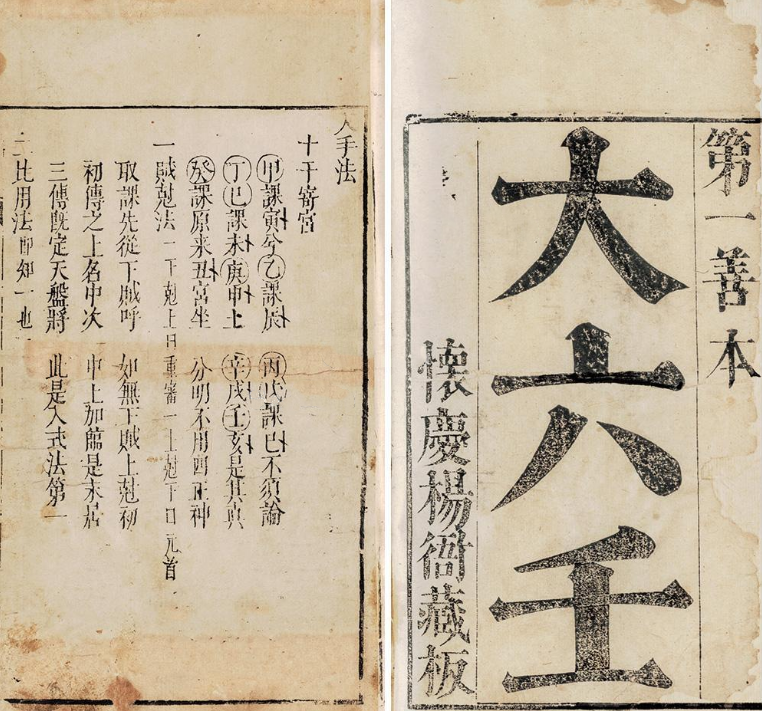 第一善本
大六壬
懷慶楊衙藏板
入手法
十干寄宮
甲課寅兮乙課辰 丙戊課巳不須論
丁巳課未庚申上 辛戌壬亥是其真
癸課原来丑宮坐 分明不用四正神
一賊尅法 一下尅上曰重審一上尅下曰元首
取課先從下賊呼 如無下賊上尅初
初傳之上名中次 中上加臨是末居
三傳既定天盤將 此是入式法第一
二比用法 即知一也